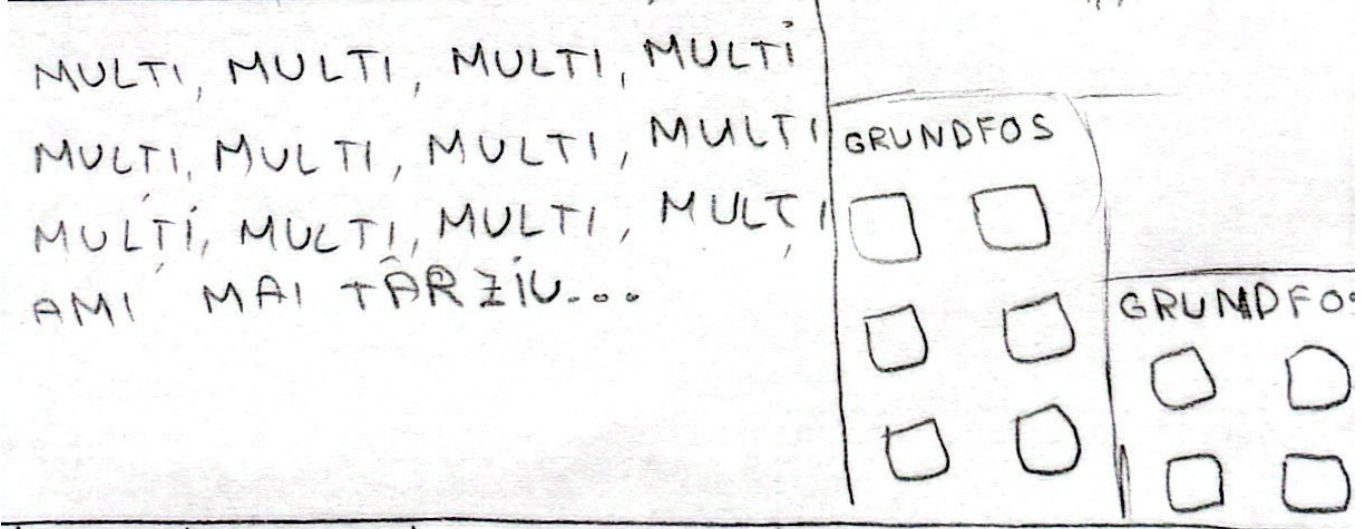 MULTI, MULTI, MULTI, MULTI
MULTI, MULTI, MULTI, MULTI
MULȚI, MULTI, MULTI, MULȚI
AMI MAI TÂRZIU...
GRUNDFOS
GRUNDFOS